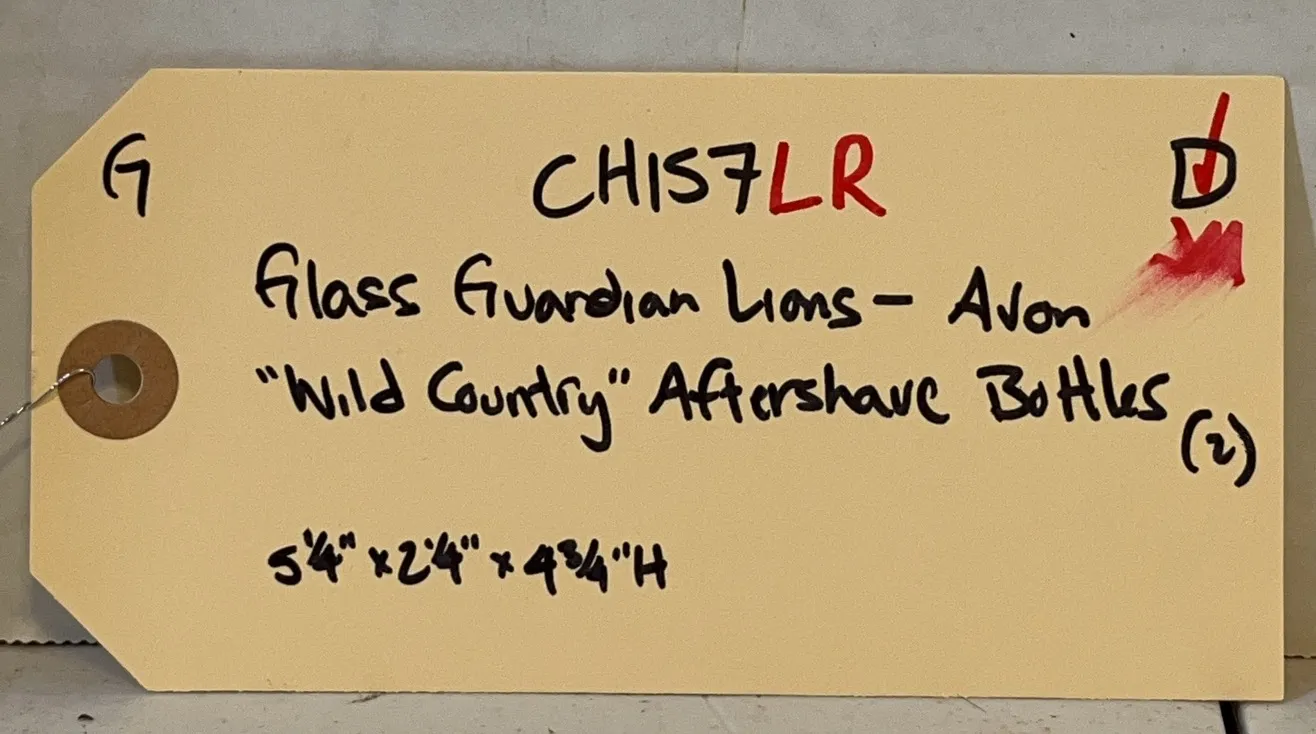 G CH157LR D
Glass Guardian Lions - Avon
"Wild Country" Aftershave Bottles
(2)
5 1/4" x 2 1/4" x 4 3/4" H